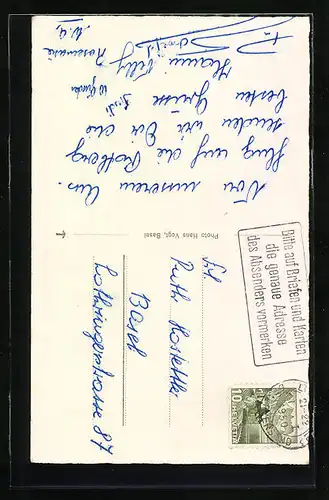 Von unserem Aus-
flug auf die Rotberg
senden wir Dir die
besten Grüsse
Hanni Nelly
Rosemarie
Photo Hans Vogt, Basel
Bitte auf Briefen und Karten
die genaue Adresse
des Absenders vermerken
HELVETIA
10
Frl.
Ruth Hostettler
Basel
Lothringerstrasse 87